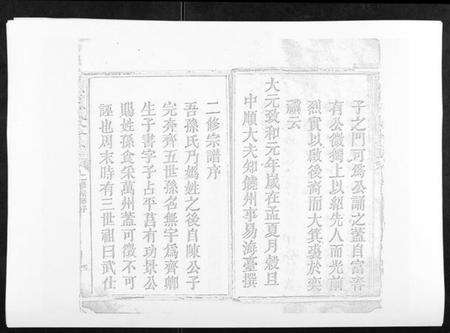 子之門可為公誦之蓋自富春
有公徵獨上以紹先人而光前
烈實以啟後裔而大箕裘於奕
禩云
大元致和元年歲在孟夏月穀旦
中順大夫知饒州事易海臺撰
二修宗譜序
吾孫氏乃媯姓之後自陳公子
完奔齊五世孫名無宇為齊卿
生子書字子占平莒有功景公
賜姓孫食采萬州蓋可徵不可
誣也周末時有三世祖曰武仕